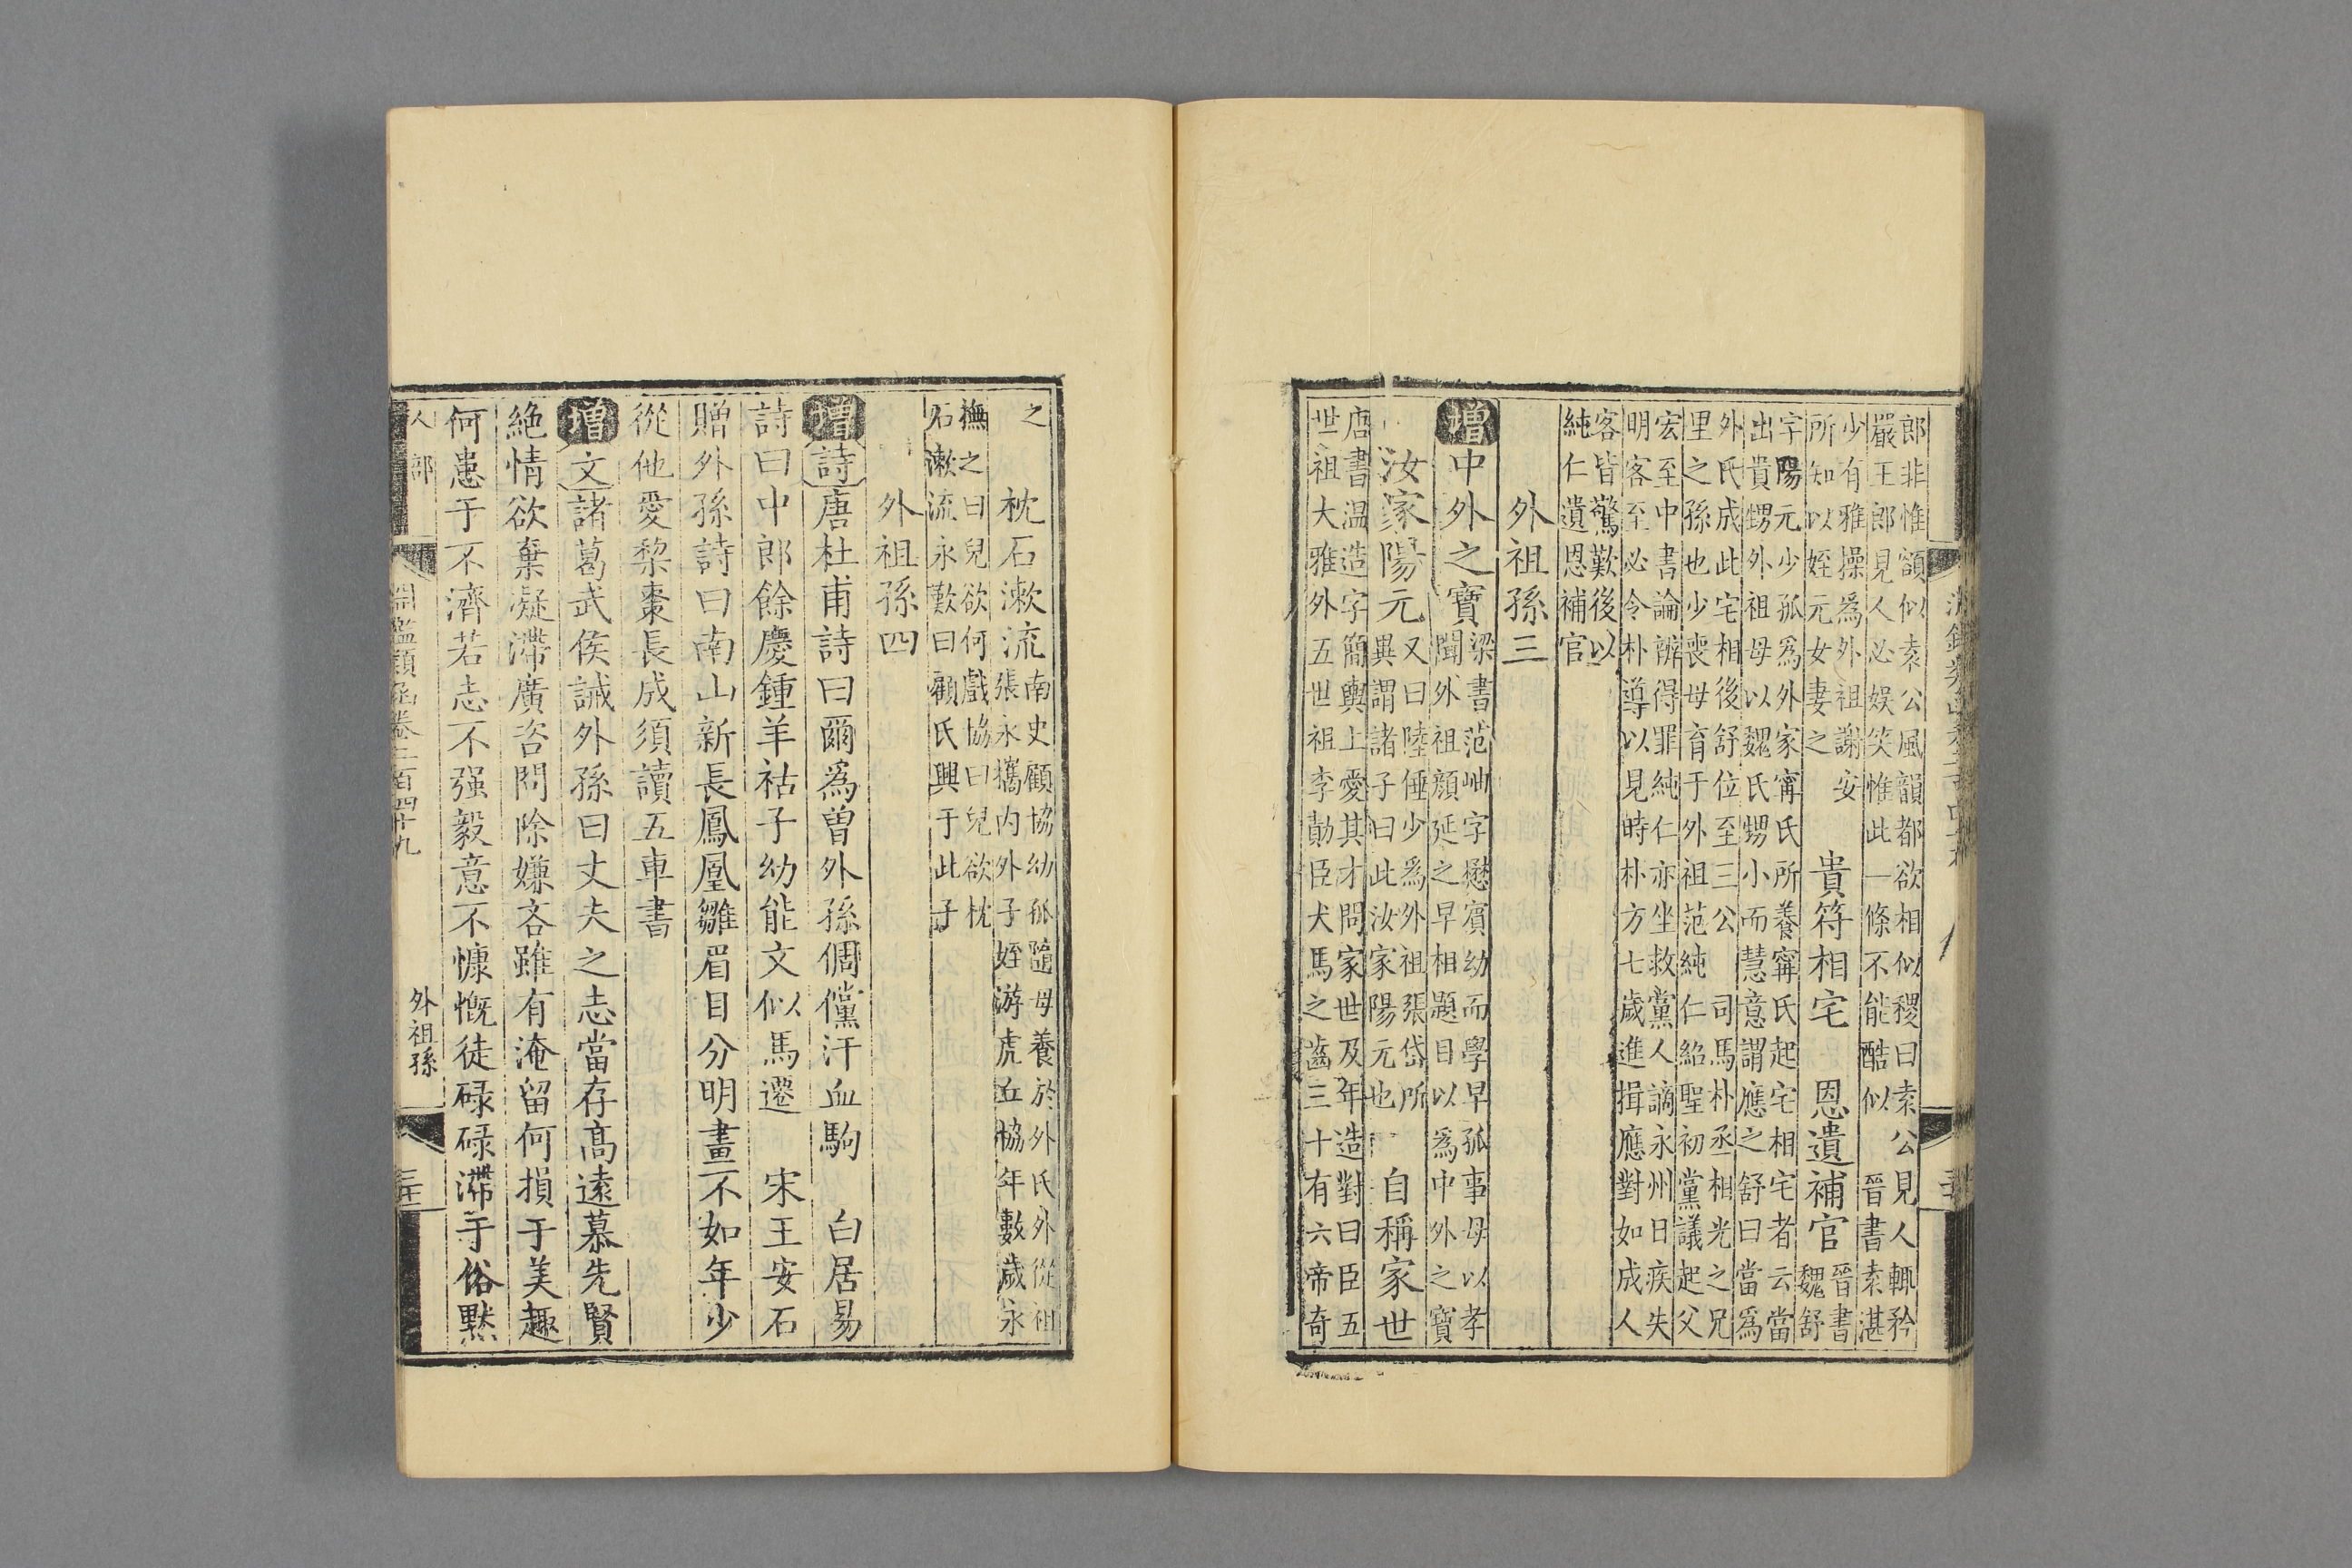 郎非惟額似袁公風韻都欲相似稷曰袁公見人輒矜
嚴王郎見人必娱笑惟此一條不能酷似　晉書袁湛
少有雅操爲外祖謝安
所知以姪元女妻之　貴符相宅　恩遺補官晉書
魏舒
字陽元少孤爲外家甯氏所養甯氏起宅相宅者云當
出貴甥外祖母以魏氏甥小而慧意謂應之舒曰當爲
外氏成此宅相後舒位至三公　司馬朴丞相光之兄
里之孫也少喪母育于外祖范純仁紹聖初黨議起父
宏至中書論辨得罪純仁亦坐救黨人謫永州日疾失
明客至必令朴導以見時朴方七歲進揖應對如成人
客皆驚歎後以
純仁遺恩補官
外祖孫三
增中外之寶梁書范岫字懋賓幼而學早孤事母以孝
聞外祖顔延之早相題目以爲中外之寶
汝家陽元又曰陸倕少爲外祖張岱所
異謂諸子曰此汝家陽元也　自稱家世
唐書温造字簡輿上愛其才問家世及年造對曰臣五
世祖大雅外五世祖李勣臣犬馬之齒三十有六帝奇
之　枕石漱流南史顧協幼孤隨母養於外氏外從祖
張永攜内外子姪游虎丘協年數歲永
撫之曰兒欲何戲協曰兒欲枕
石漱流永歎曰顧氏興于此子
外祖孫四
增詩唐杜甫詩曰爾爲曾外孫倜儻汗血駒　白居易
詩曰中郎餘慶鍾羊祜子幼能文似馬遷　宋王安石
贈外孫詩曰南山新長鳳凰雛眉目分明畫不如年少
從他愛梨棗長成須讀五車書
增文諸葛武侯誡外孫曰丈夫之志當存高遠慕先賢
絶情欲棄凝滯廣咨問除嫌吝雖有淹留何損于美趣
何患于不濟若志不强毅意不慷慨徒碌碌滯于俗黙
人部　淵鑑類函卷二百四十九　外祖孫　三十